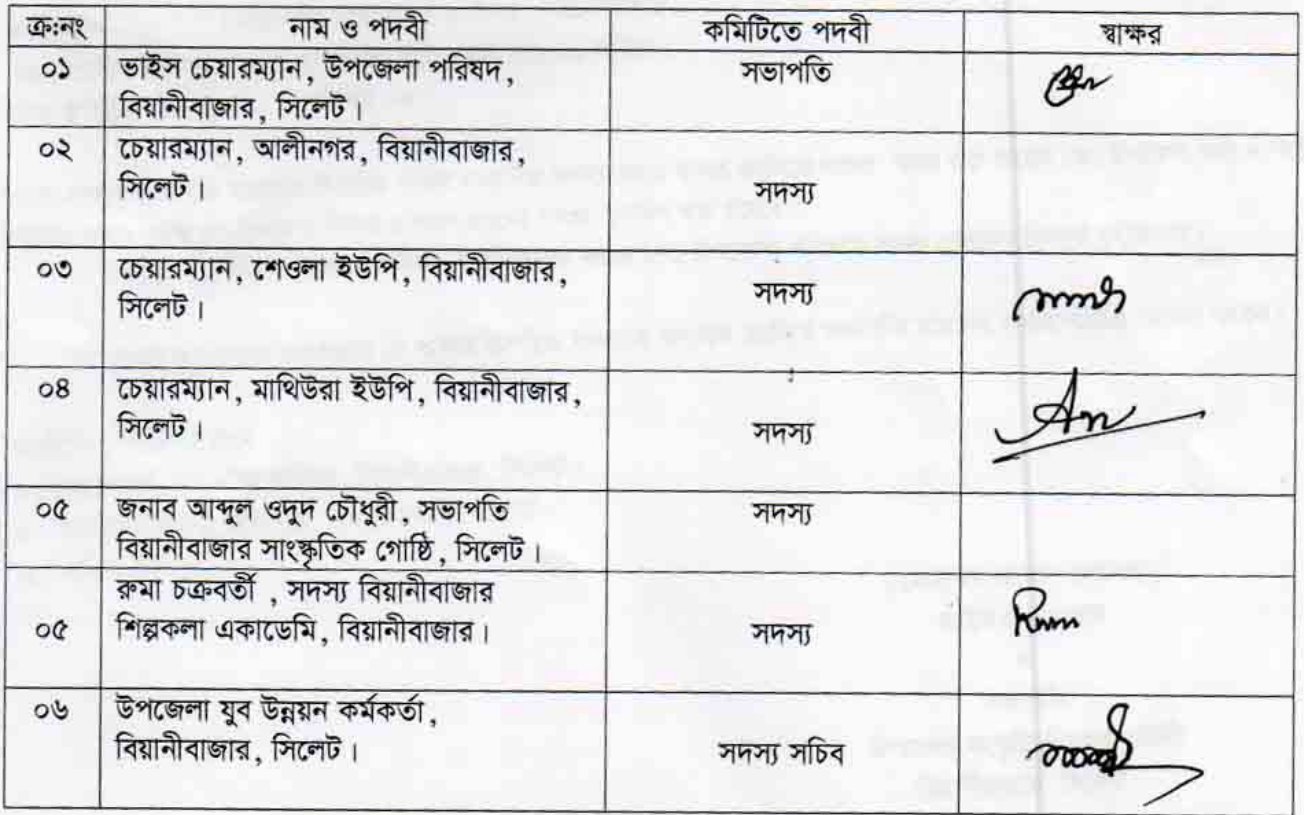 ক্র:নং নাম ও পদবী কমিটিতে পদবী স্বাক্ষর
০১ ভাইস চেয়ারম্যান, উপজেলা পরিষদ, সভাপতি
বিয়ানীবাজার, সিলেট।
০২ চেয়ারম্যান, আলীনগর, বিয়ানীবাজার,
সিলেট। সদস্য
০৩ চেয়ারম্যান, শেওলা ইউপি, বিয়ানীবাজার,
সিলেট। সদস্য
০৪ চেয়ারম্যান, মাথিউরা ইউপি, বিয়ানীবাজার,
সিলেট। সদস্য
০৫ জনাব আব্দুল ওদুদ চৌধুরী, সভাপতি সদস্য
বিয়ানীবাজার সাংস্কৃতিক গোষ্ঠি, সিলেট।
রুমা চক্রবর্তী , সদস্য বিয়ানীবাজার
০৫ শিল্পকলা একাডেমি, বিয়ানীবাজার। সদস্য
০৬ উপজেলা যুব উন্নয়ন কর্মকর্তা,
বিয়ানীবাজার, সিলেট। সদস্য সচিব